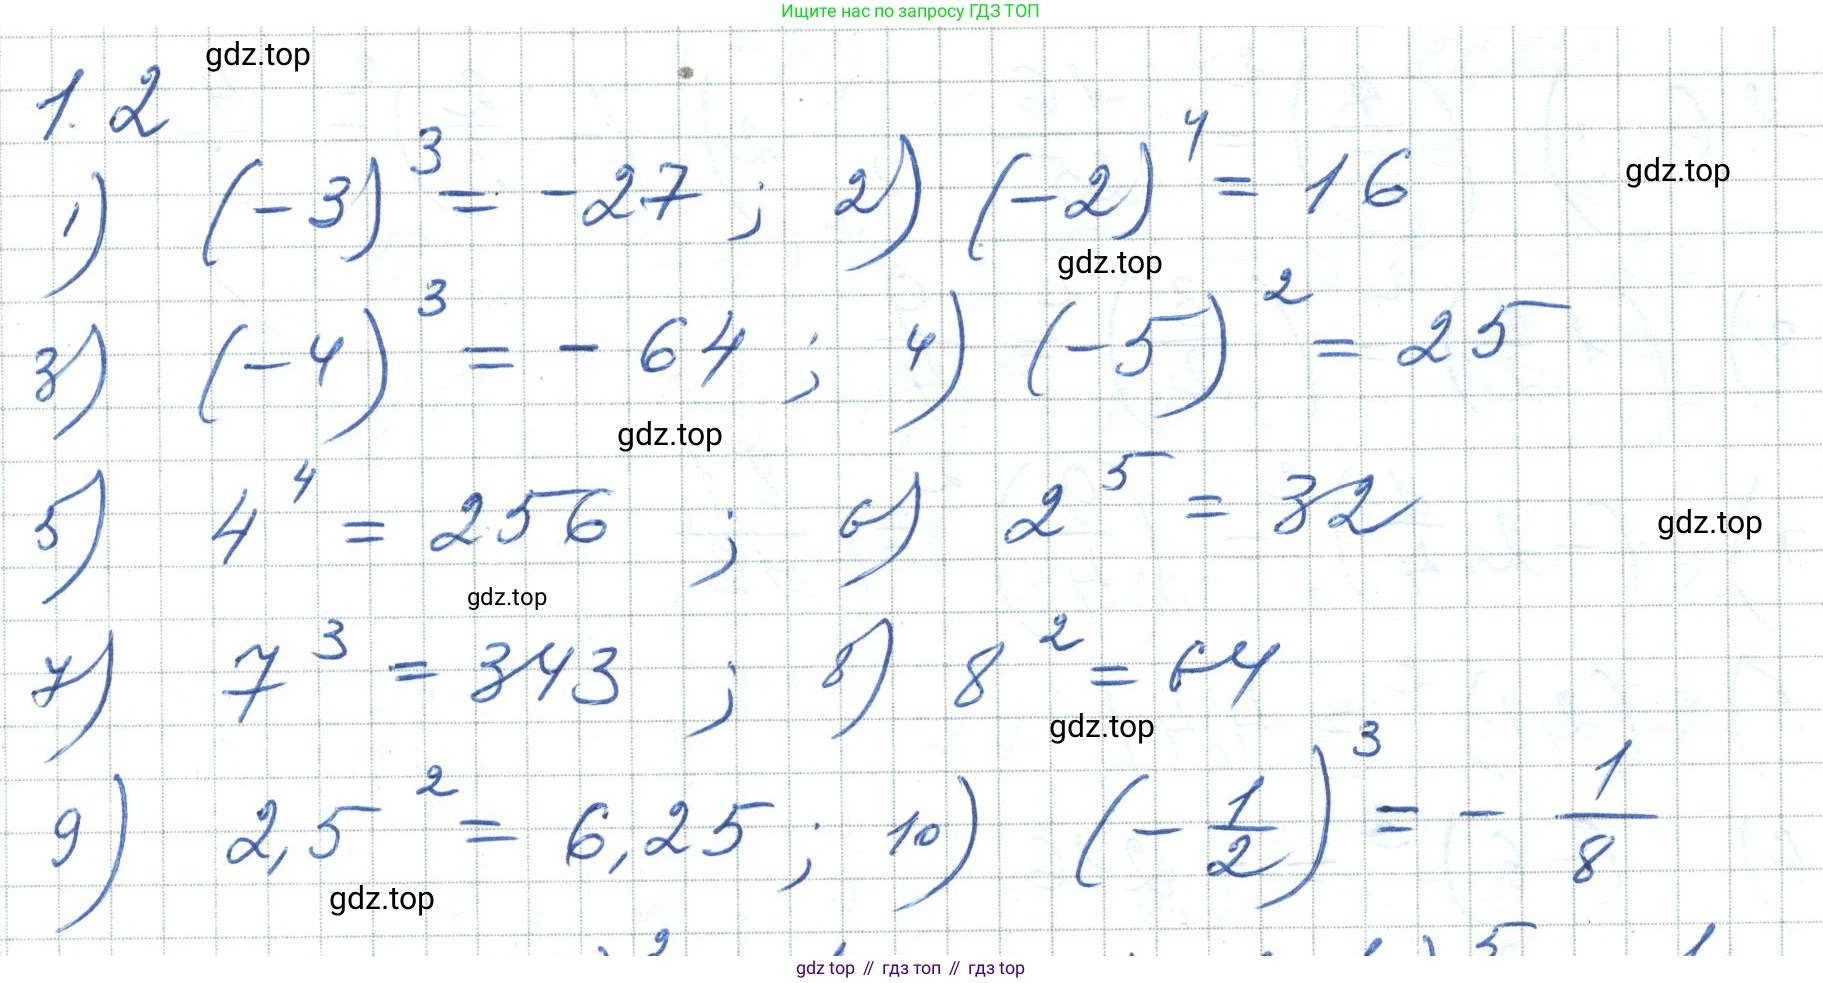 Ищите нас по запросу ГДЗ ТОП
gdz.top
1.2
1) (-3)³ = -27 ; 2) (-2)⁴ = 16
gdz.top
gdz.top
3) (-4)³ = -64 ; 4) (-5)² = 25
gdz.top
5) 4⁴ = 256 ; 6) 2⁵ = 32
gdz.top
gdz.top
7) 7³ = 343 ; 8) 8² = 64
gdz.top
9) 2,5² = 6,25 ; 10) (-1/2)³ = -1/8
gdz.top
gdz top // гдз топ // гдз top